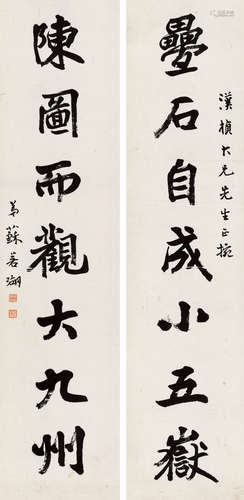 疊石自成小五嶽
漢楨大兄先生正捥
陳圖而觀大九州
弟蘇若瑚